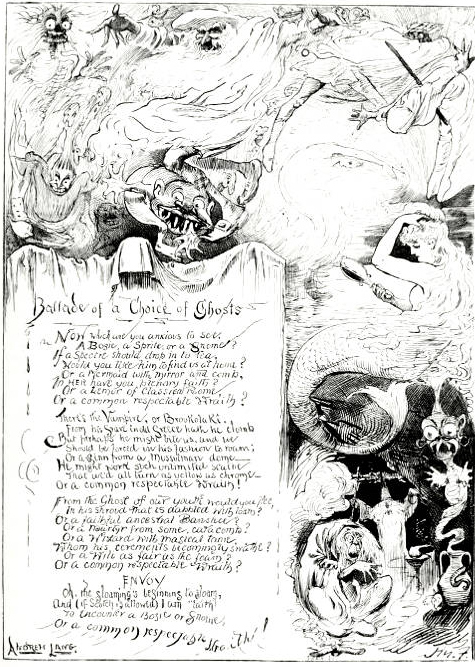 Ballade of a Choice of Ghosts
Now which are you anxious to see,
A Bogie, a Sprite, or a Gnome?
If a Spectre should drop in to tea,
Would you like him to find us at home?
Or a Mermaid with mirror and comb,
In HER have you plenary faith?
Or a Lemur of Classical Rome,
Or a common respectable Wraith?
There's the Vampire, or Broukolaki,
From his grave in Greece hath he clomb
But perhaps he might bite us, and we
Should be forced in his fashion to roam;
Or a Djinn from a Mussulman dome
He might work such unlimited scathe
That we'd all turn as yellow as chrome
Or a common respectable Wraith!
From the Ghost of our youth would you flee,
In his shroud that is dabbled with foam?
Or a faithful ancestral Banshee?
Or a Martyr from some catacomb?
Or a Wizard with magical tome,
Whom his cerements becomingly swathe?
Or a Wili as fair as the foam?
Or a common respectable Wraith?
ENVOY
Oh, the gloaming's beginning to gloom,
And (if Scotch is allowed) I am "laith"
To encounter a Bogie or Gnome,
Or a common respectable Wraith!
ANDREW LANG.